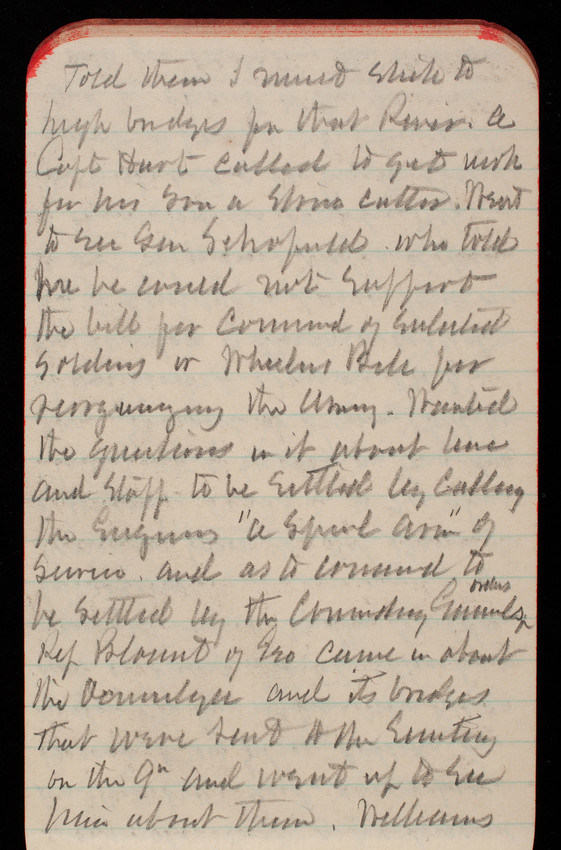 Told them I must stick to
high bridges for that River. A
Capt Hart called to get work
for his son a stone cutter. Went
to see Gen Schofield who told
me he could not support
the bill for Command of enlisted
Soldiers or Wheelers Bill for
reorganizing the Army. Wanted
the questions in it about line
and Staff to be settled by calling
the Engineers "a special arm" of
service. and as to command to
be settled by the Commdng Generals orders
Rep Blount of Geo came in about
the Ocmulgee and its bridges
that were sent to the
on the 9th and went up to see
him about them. Williams